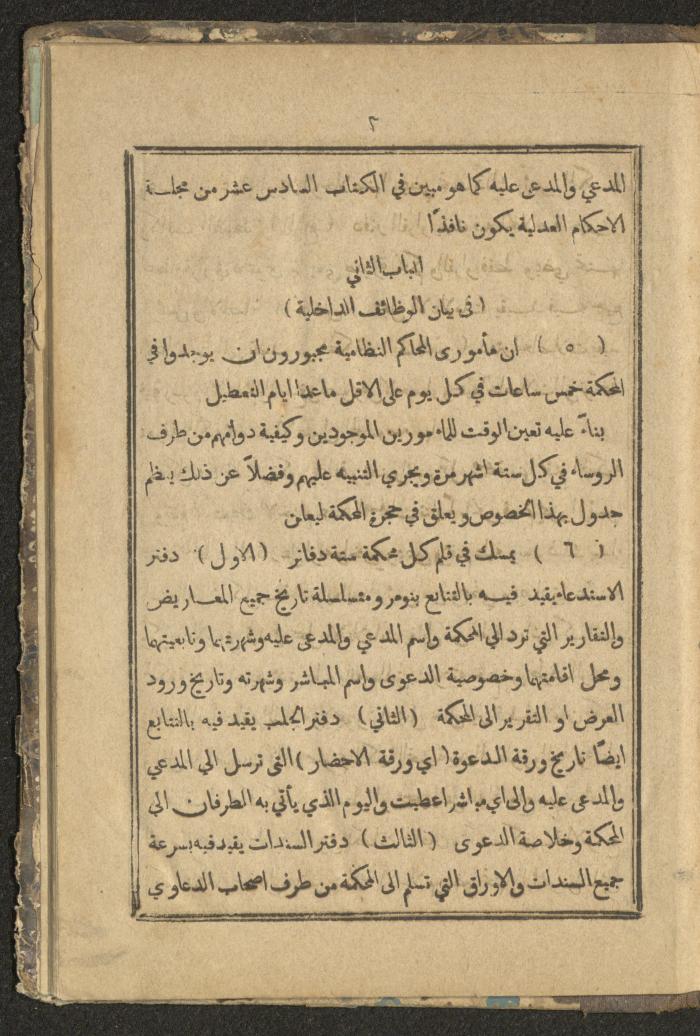 ٢
المدعي والمدعى عليه كما هو مبين في الكتاب السادس عشر من مجلة
الاحكام العدلية يكون نافذًا
الباب الثاني
( في بيان الوظائف الداخلية )
( ٥ ) ان مأموري المحاكم النظامية مجبورون ان يوجدوا في
المحكمة خمس ساعات في كل يوم على الاقل ماعدا ايام التعطيل
بناءً عليه تعين الوقت للمامورين الموجودين وكيفية دوامهم من طرف
الروساء في كل ستة اشهر مرة ويجري التنبيه عليهم وفضلاً عن ذلك ينظم
جدول بهذا الخصوص ويعلق في حجرة المحكمة ليعلن
( ٦ ) يمسك في قلم كل محكمة ستة دفاتر (الاول) دفتر
الاستدعاء يقيد فيه بالتتابع بنومرو متسلسلة تاريخ جميع المعاريض
والتقارير التي ترد الي المحكمة واسم المدعي والمدعى عليه وشهرتهما وتابعيتهما
ومحل اقامتهما وخصوصية الدعوى واسم المباشر وشهرته وتاريخ ورود
العرض او التقرير الى المحكمة (الثاني) دفتر الجلب يقيد فيه بالتتابع
ايضًا تاريخ ورقة الدعوة (اي ورقة الاحضار) التي ترسل الي المدعي
والمدعى عليه والى اي مباشر اعطيت واليوم الذي يأتي به الطرفان الي
المحكمة وخلاصة الدعوى (الثالث) دفتر السندات يقيد فيه بسرعة
جميع السندات والاوراق التي تسلم الى المحكمة من طرف اصحاب الدعاوي